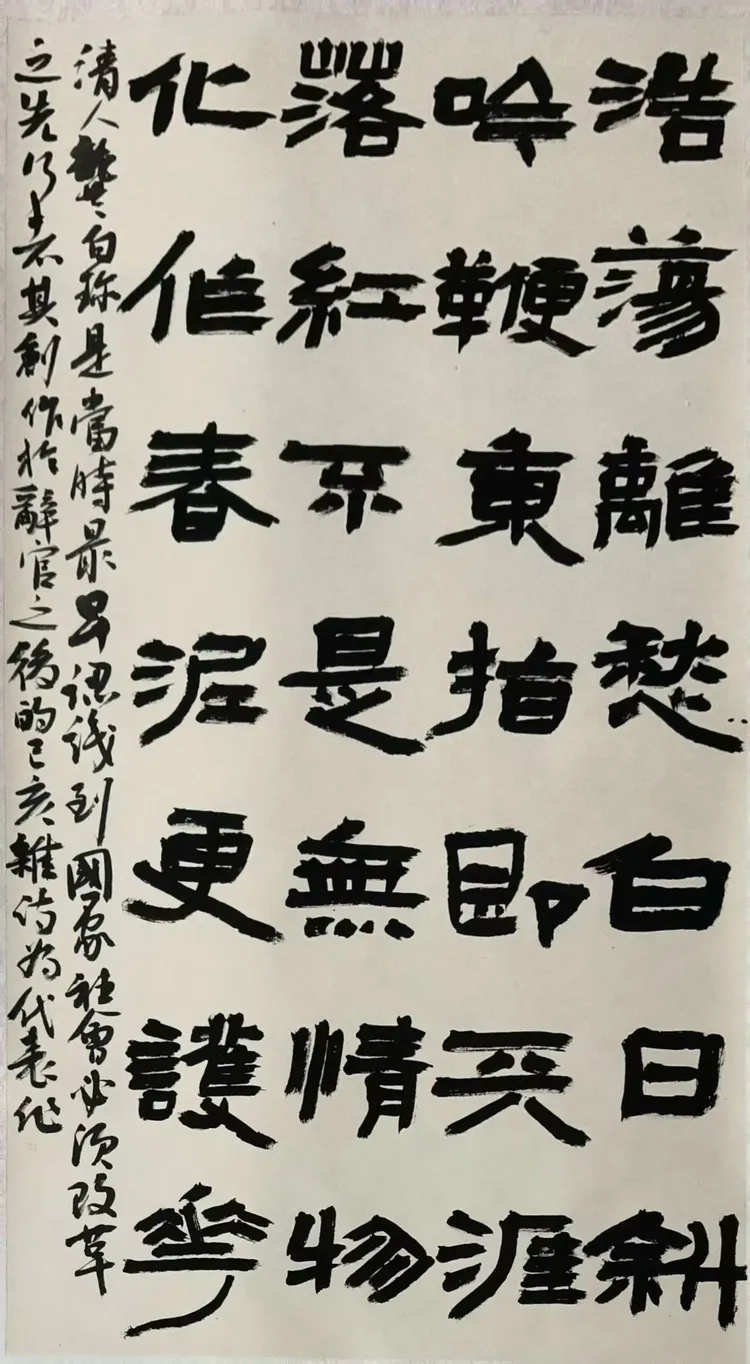 浩蕩離愁白日斜
吟鞭東指即天涯
落紅不是無情物
化作春泥更護花
清人龔自珍是當時最早認識到國家社會必須改革
之先行者其創作於辭官之後的己亥雜詩為代表作